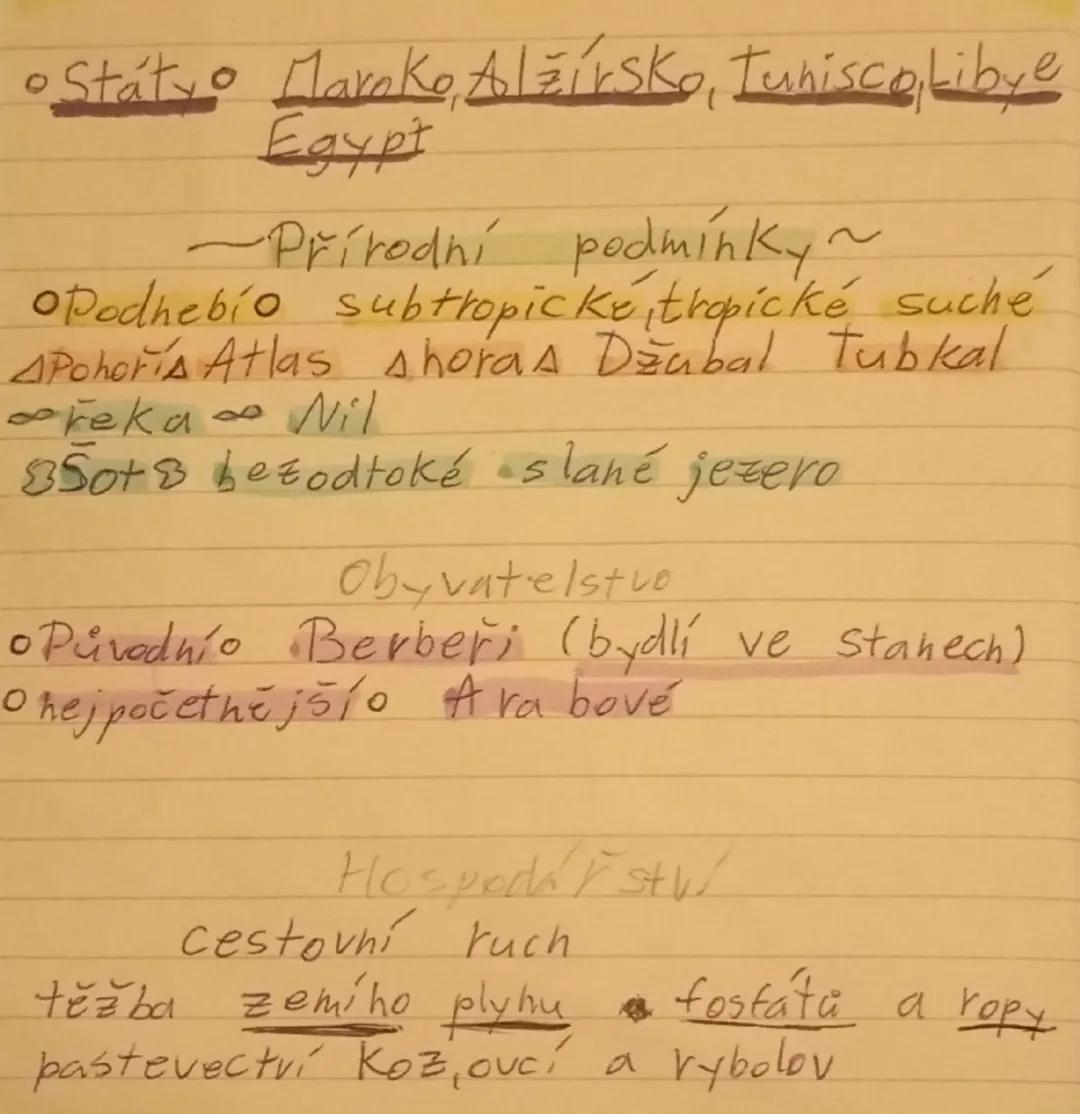 Státy Maroko, Alžírsko, Tunisco, Libye
Egypt
~Přírodní podmínky~
Podnebí subtropické, tropické suché
Pohoří Atlas hora Džabal Tubkal
∞ řeka ∞ Nil
Šot bezodtoké slané jezero
Obyvatelstvo
Původní Berbeři (bydlí ve stanech)
nejpočetnější Arabové
Hospodářství
cestovní ruch
těžba zemího plynu fosfátů a ropy
pastevectví koz, ovcí a rybolov